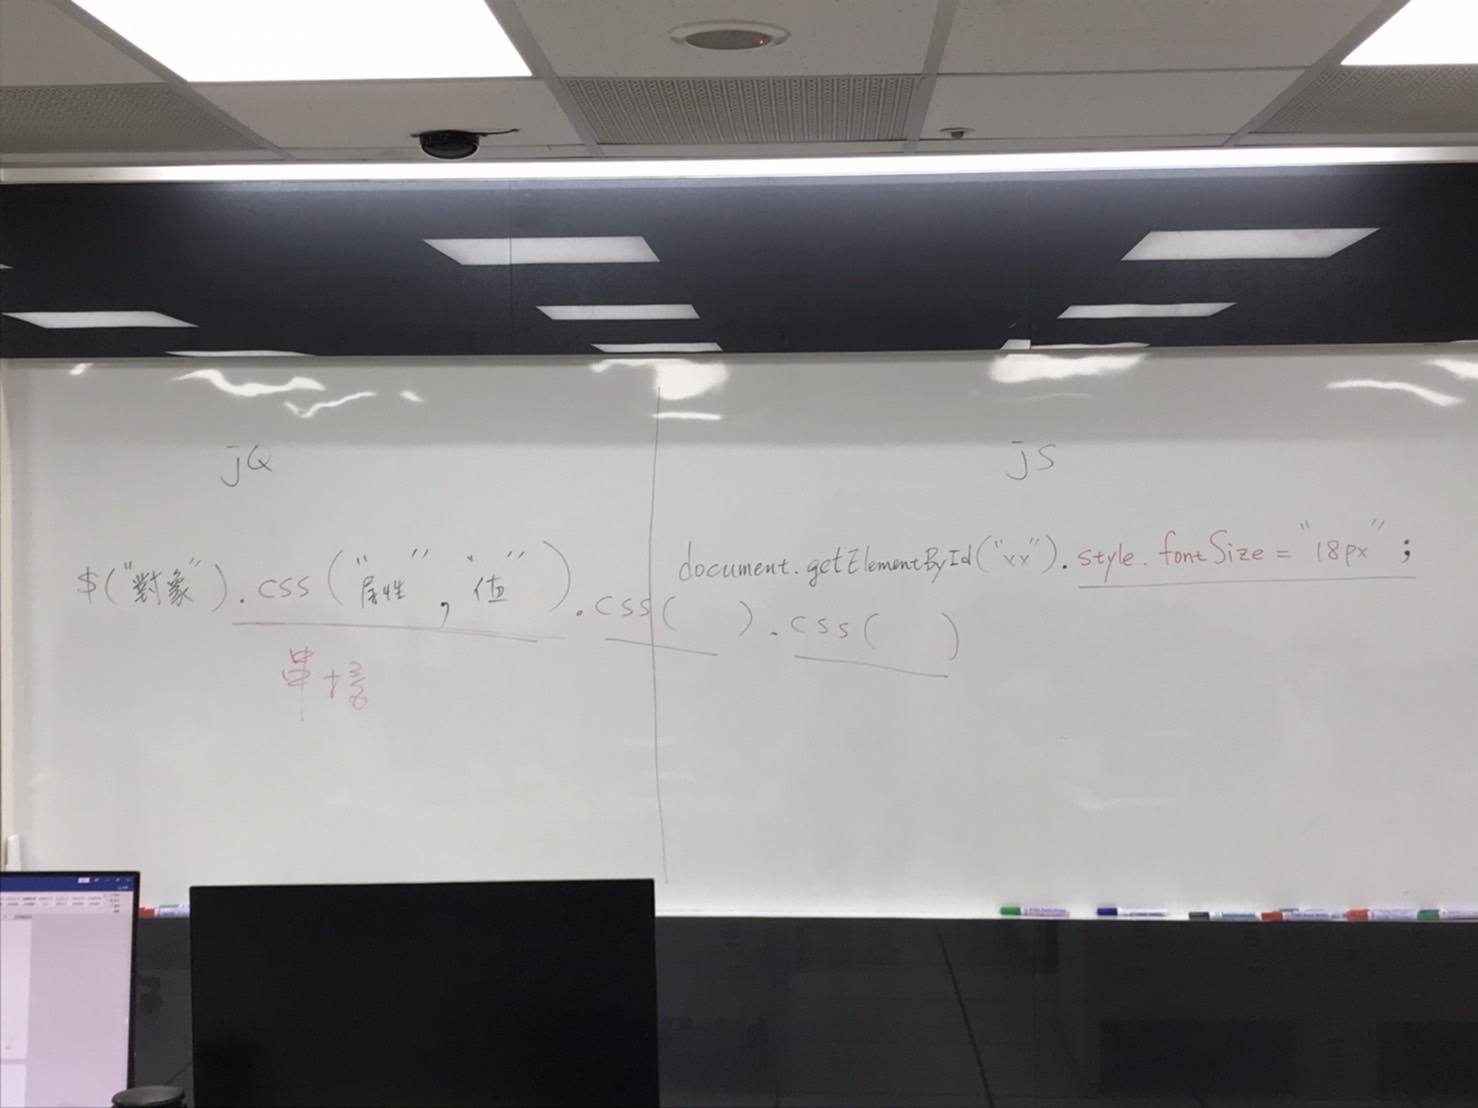 jQ
$("對象").css("屬性","值").css( ).css( )
串接
jS
document.getElementById("xx").style.fontSize="18px";